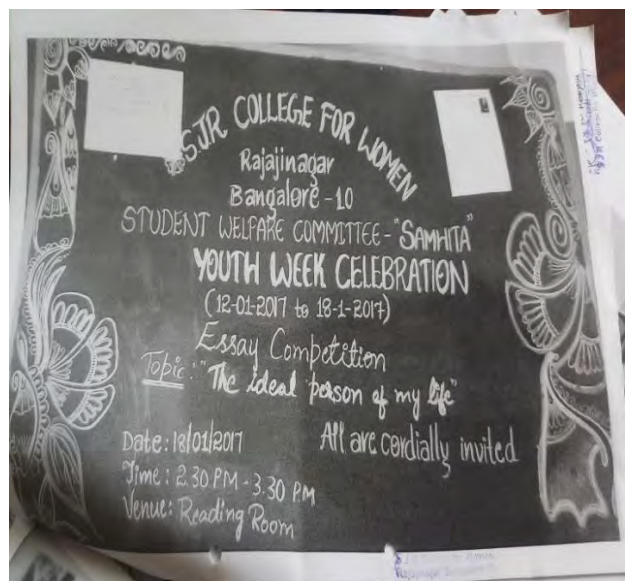 SJR COLLEGE FOR WOMEN
Rajajinagar
Bangalore - 10
STUDENT WELFARE COMMITTEE - "SAMHITA"
YOUTH WEEK CELEBRATION
(12-01-2017 to 18-1-2017)
Essay Competition
Topic: "The ideal person of my life"
Date: 18/01/2017
All are cordially invited
Time: 2.30 PM - 3.30 PM
Venue: Reading Room